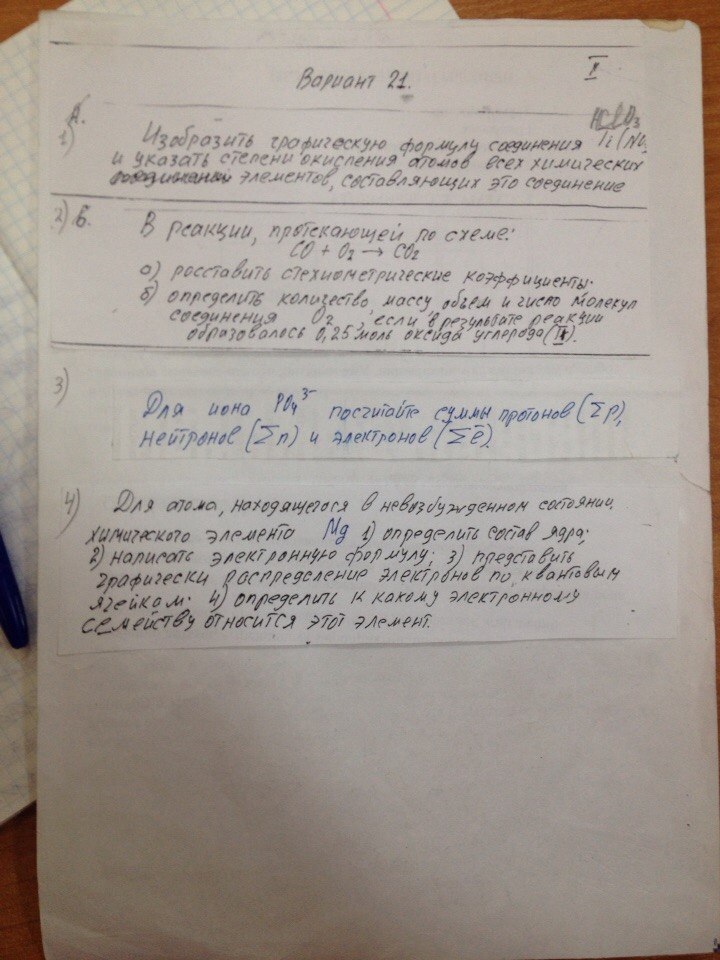 Вариант 21.
II
А.
1) Изобразить графическую формулу соединения
и указать степени окисления атомов всех химических
соединений элементов, составляющих это соединение
2) Б. В реакции, протекающей по схеме:
CO + O2 → CO2
а) расставить стехиометрические коэффициенты.
б) определить количество, массу, объем и число молекул
соединения O2, если в результате реакции
образовалось 0,25 моль оксида углерода (II).
3) Для иона PO4 3- посчитайте суммы протонов (Σp),
нейтронов (Σn) и электронов (Σē).
4) Для атома, находящегося в невозбужденном состоянии,
химического элемента Mg 1) определить состав ядра;
2) написать электронную формулу; 3) представить
графически распределение электронов по квантовым
ячейкам. 4) определить к какому электронному
семейству относится этот элемент.